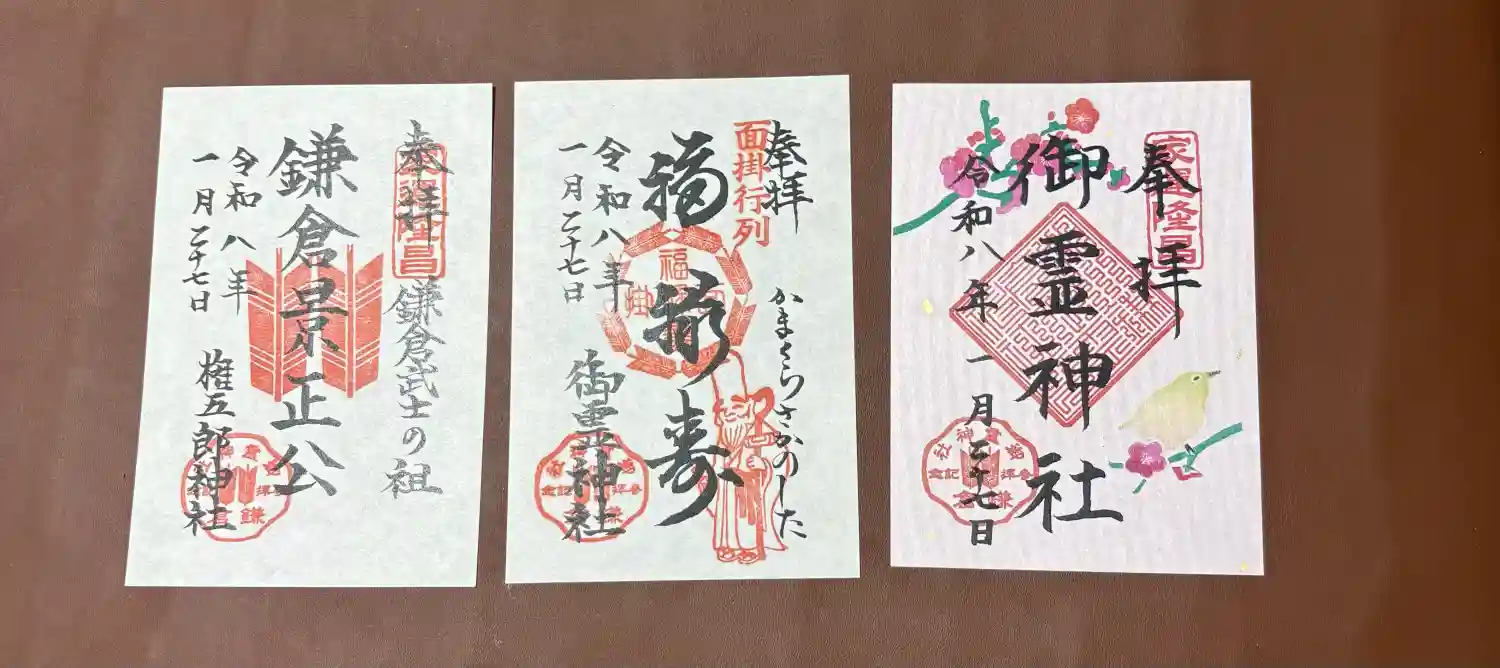 奉拝
家運隆昌
鎌倉武士の祖
鎌倉景正公
令和八年
一月二十七日
権五郎神社
奉拝
面掛行列
かまくらさかのした
福禄寿
令和八年
一月二十七日
御霊神社
奉拝
家運隆昌
御霊神社
令和八年一月二十七日